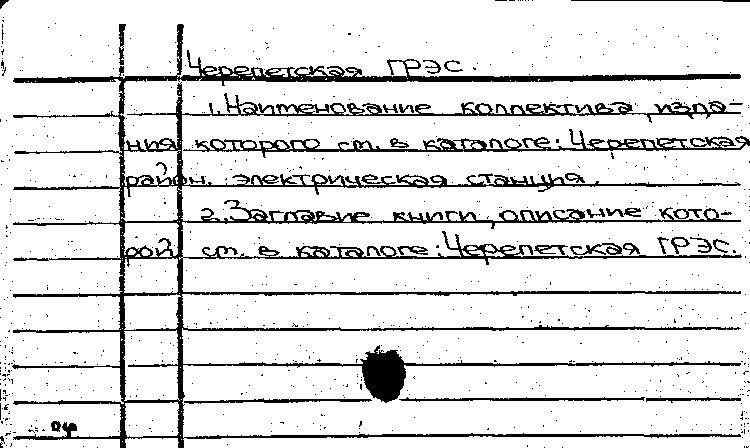 Черепетская ГРЭС.
1. Наименование коллектива, изда-
ния которого см. в каталоге: Черепетская
район. электрическая станция.
2. Заглавие книги, описание кото-
рой см. в каталоге: Черепетская ГРЭС.